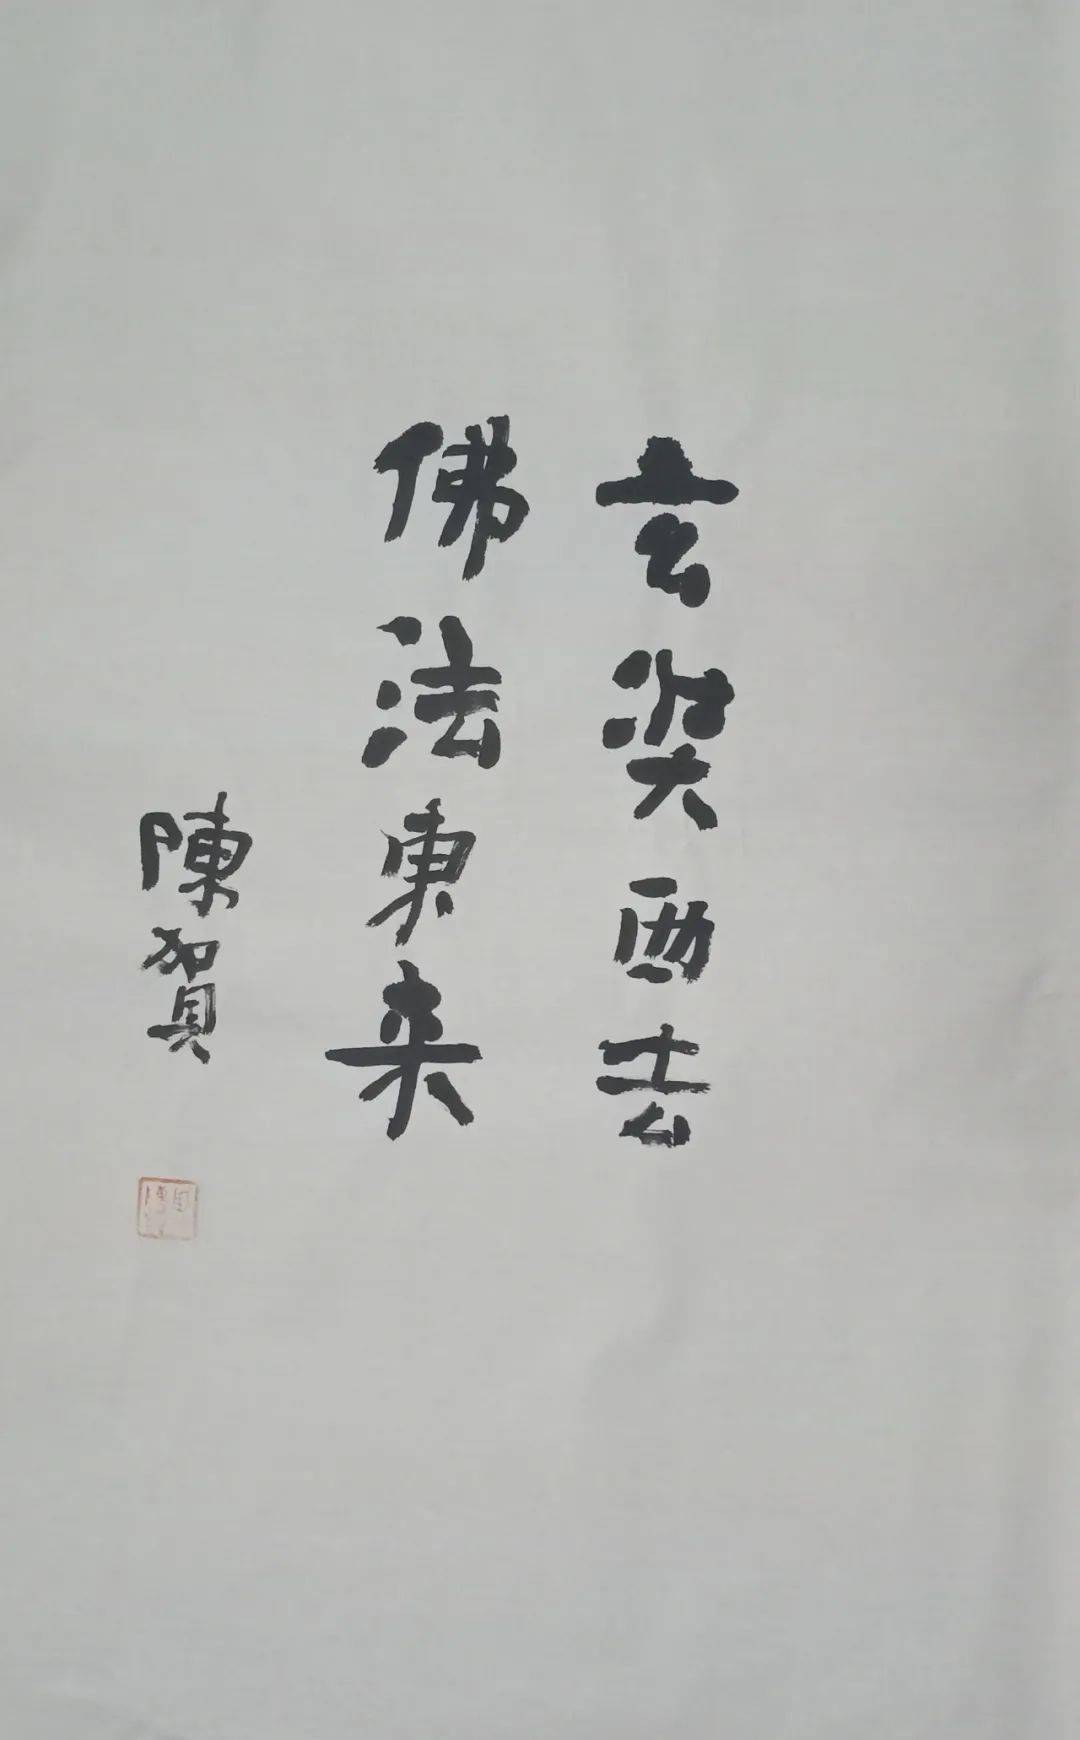 玄奘西去
佛法東来
陳賀